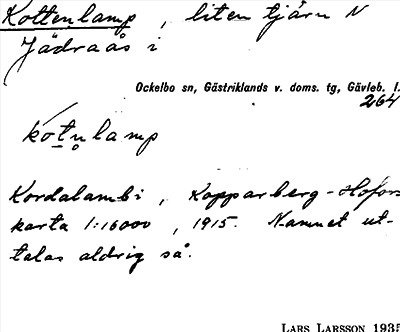 Kottenlamp, liten tjärn N
Jädraås i
Ockelbo sn, Gästriklands v. doms. tg, Gävleb. l.
264
kotn̥lamp
Kordalambi, Kopparberg-Hofors
karta 1:16000, 1915. Namnet ut-
talas aldrig så.
LARS LARSSON 1935